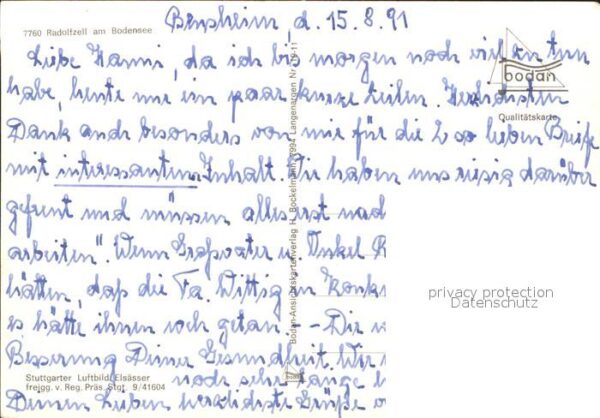 Bensheim, d. 15.8.91
7760 Radolfzell am Bodensee
Liebe Hanni, da ich bis morgen noch viel zu tun
habe, heute nur ein paar kurze Zeilen. Herzlichsten
Dank auch besonders von mir für die 2 so lieben Briefe
mit interessantem Inhalt. Wir haben uns riesig darüber
gefreut und müssen alles erst
arbeiten". Wenn Großvater u. Onkel
hätten, daß die Fa. Wittig in Konk
es hätte ihnen weh getan. - Dir
Besserung Deiner Gesundheit. Wir
noch sehr lange
Deinen Lieben herzlichste Grüße
bodan
Qualitätskarte
Bodan-Ansichtskartenverlag H. Bockelmann, 7994 Langenargen Nr.
Stuttgarter Luftbild Elsässer
freigg. v. Reg. Präs. Stgt. 9/41604
privacy protection
Datenschutz